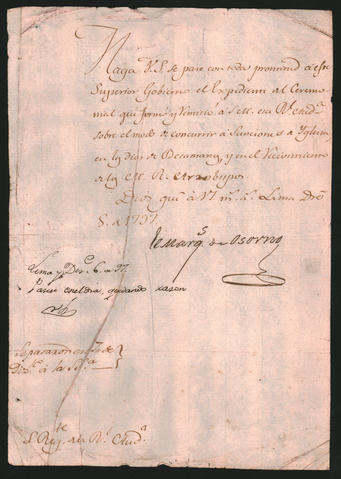 Haga V.S. se pase con toda prontitud à este
Superior Govierno el Expediente al Ceremo-
nial que formó y remitió à S.M. esa Rl. Aud.a
sobre el modo de concurrir à funciones de Iglesia
en los dias de Besamanos, y en el Recivimiento
de los M. R. Arzobispos
Dios gue. à V.S. m.s a.s Lima Dre
5. de 1797.
el Marq.s de Osorno
Lima y Dre. 6. de 97.
Pasese quedando razon
Se pasaron en 7. de
Dre. à la
S. Reg.te de la Rl. Aud.a